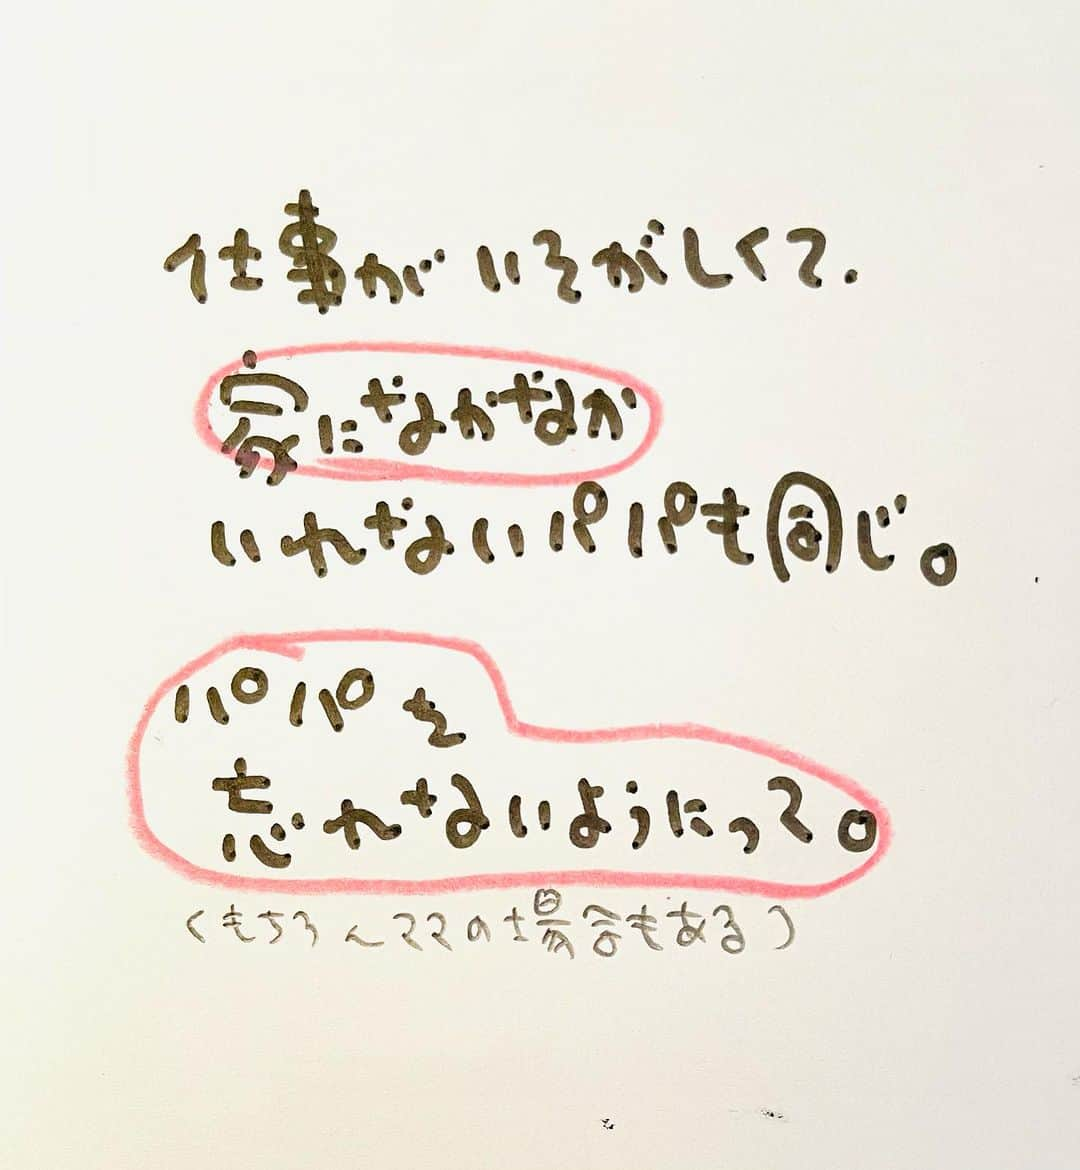 仕事がいそがしくて.
家になかなか
いれないパパも同じ。
パパを
忘れないようにって。
(もちろんママの場合もある)